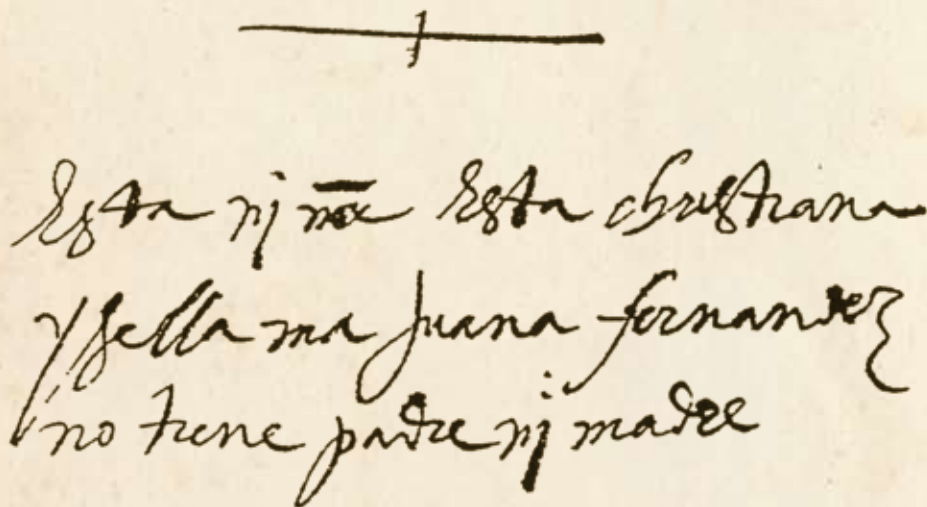 Esta njña Esta christiana
y sella ma Juana fernandez
no tiene padre nj madre